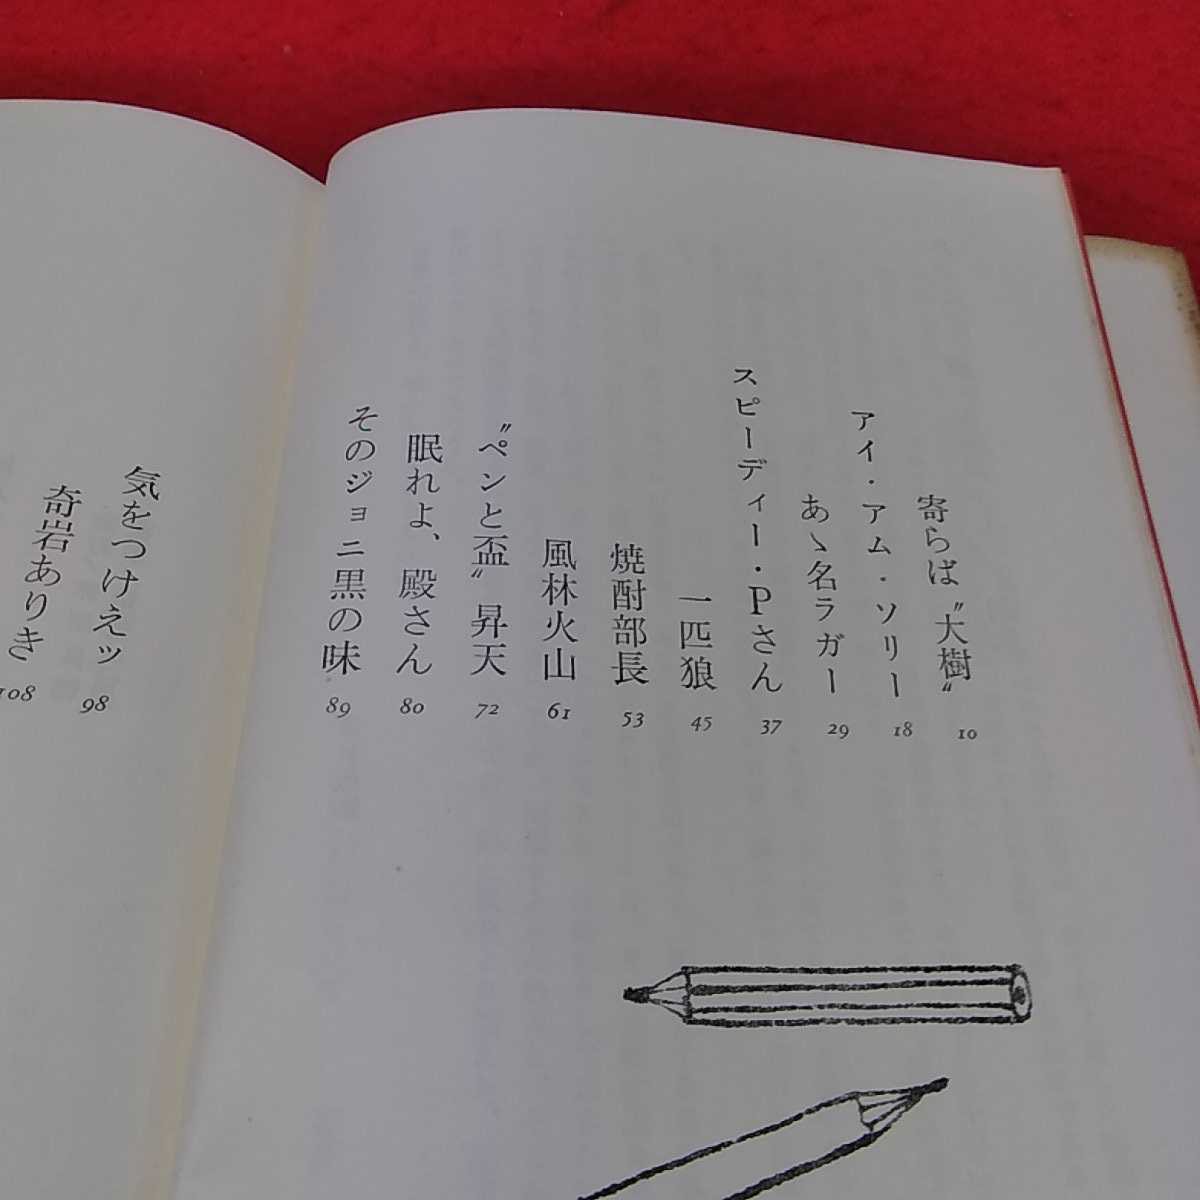 寄らば〝大樹〟 10
アイ・アム・ソリー 18
あゝ名ラガー 29
スピーディー・Pさん 37
一匹狼 45
焼酎部長 53
風林火山 61
〝ペンと盃〟昇天 72
眠れよ、殿さん 80
そのジョニ黒の味 89
気をつけえッ 98
奇岩ありき 108